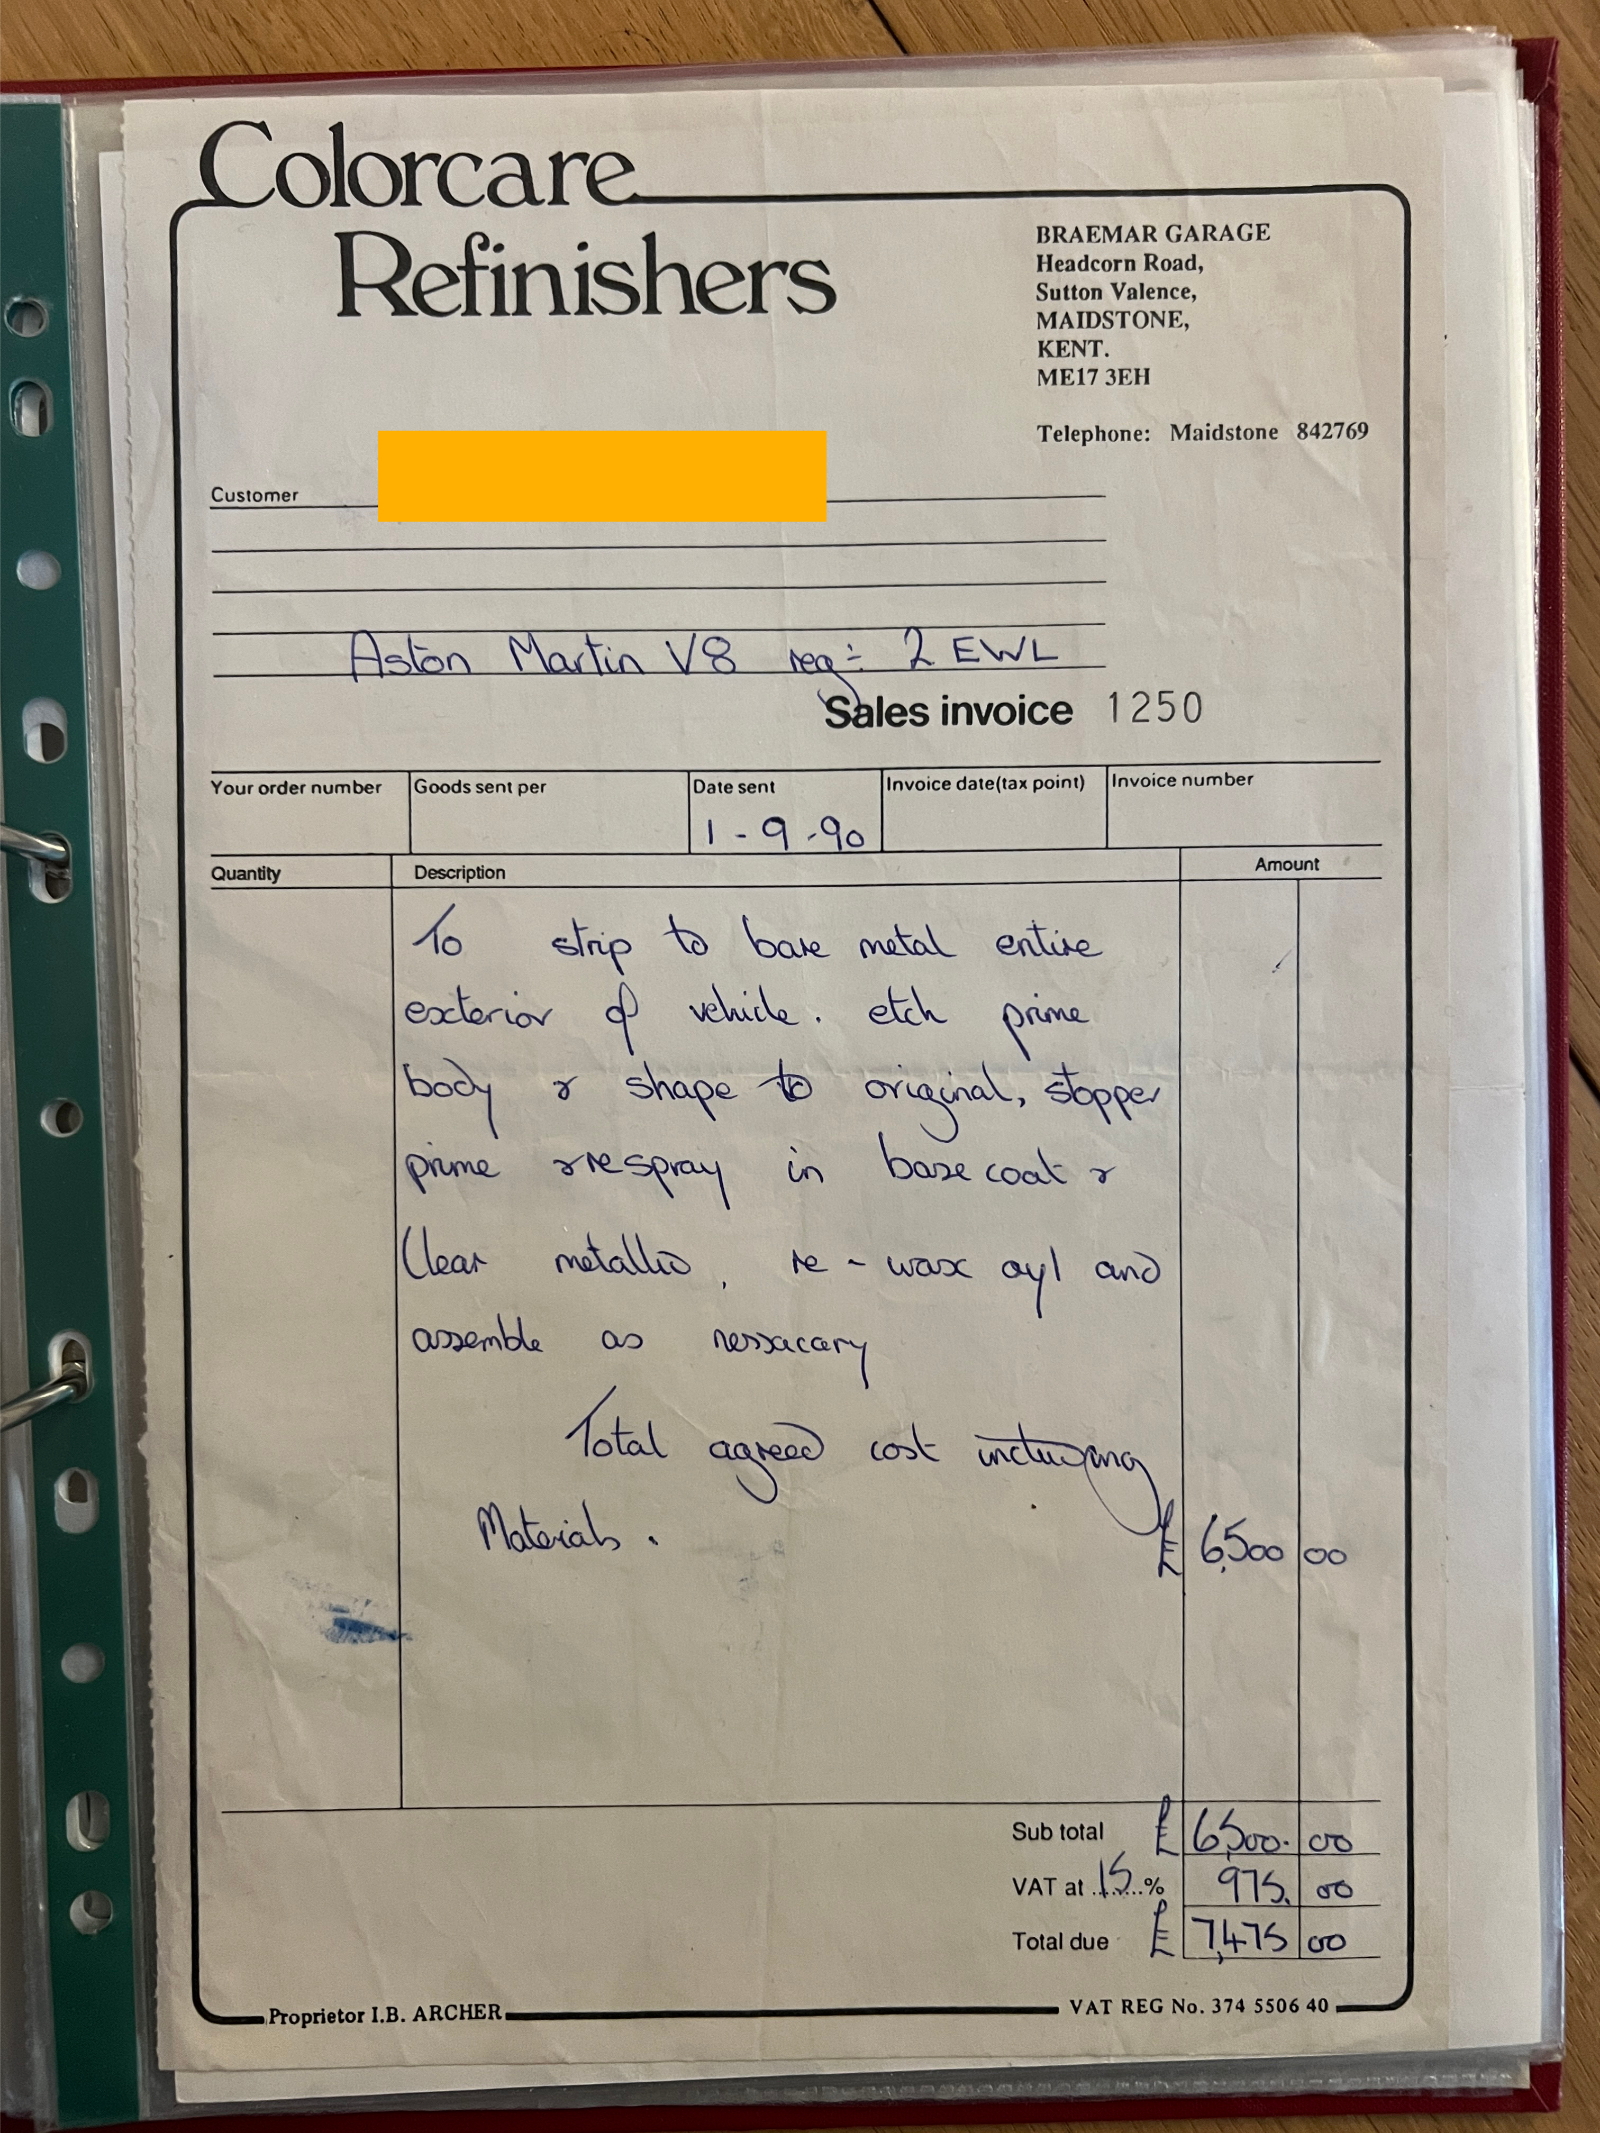 Colorcare
Refinishers
BRAEMAR GARAGE
Headcorn Road,
Sutton Valence,
MAIDSTONE,
KENT.
ME17 3EH
Telephone: Maidstone 842769
Customer
Aston Martin V8 reg:- 2 EWL
Sales invoice 1250
Your order number Goods sent per Date sent Invoice date(tax point) Invoice number
1-9-90
Quantity Description Amount
To strip to bare metal entire
exterior of vehicle. etch prime
body & shape to original, stopper
prime & respray in base coat &
Clear metallic, re-wax oyl and
assemble as nessacary
Total agreed cost including
Materials. £ 6,500 00
Sub total £ 6,500. 00
VAT at 15% 975. 00
Total due £ 7,475 00
Proprietor I.B. ARCHER VAT REG No. 374 5506 40